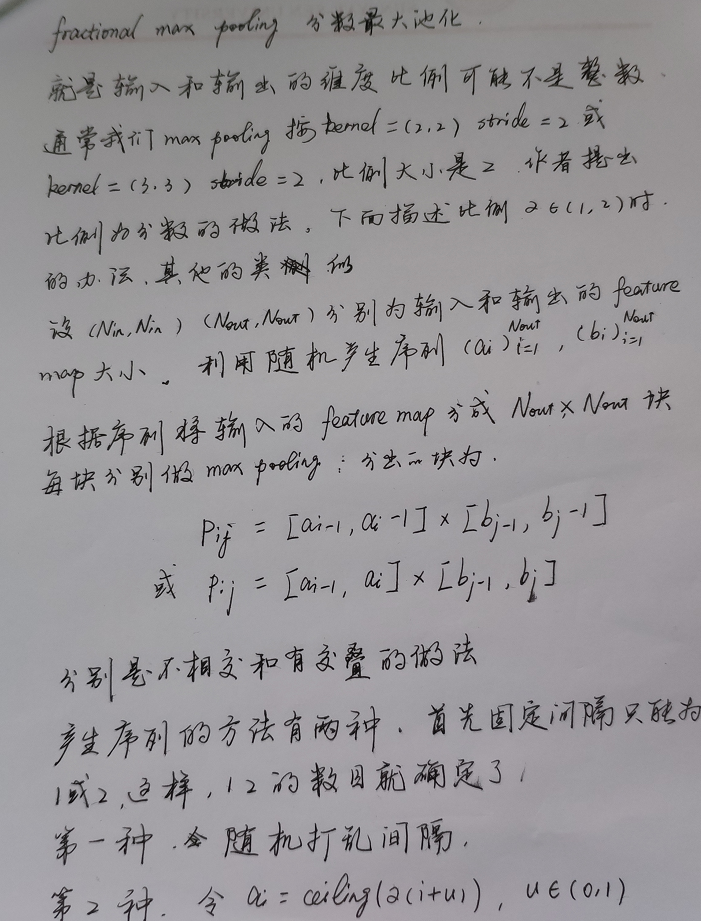 fractional max pooling 分数最大池化.
就是输入和输出的维度比例可能不是整数.
通常我们 max pooling 按 kernel = (2,2) stride = 2 或
kernel = (3.3) stride = 2 , 比例大小是2 . 作者提出
比例为分数的做法。下面描述比例 α∈(1,2)时.
的办法、其他的类似
设 (Nin, Nin) (Nout, Nout) 分别为输入和输出的 feature
map 大小。利用随机产生序列 (ai)_{i=1}^{Nout} , (bi)_{i=1}^{Nout}
根据序列将输入的 feature map 分成 Nout × Nout 块
每块分别做 max pooling ; 分出一块为.
Pij = [ai-1, ai -1] × [bj-1, bj -1]
或 Pij = [ai-1, ai] × [bj-1, bj]
分别是不相交和有交叠的做法
产生序列的方法有两种. 首先固定间隔只能为
1或2,这样, 1 2 的数目就确定了,
第一种. 随机打乱间隔.
第2种. 令 ai = ceiling(α(i+u)) , u∈(0,1)